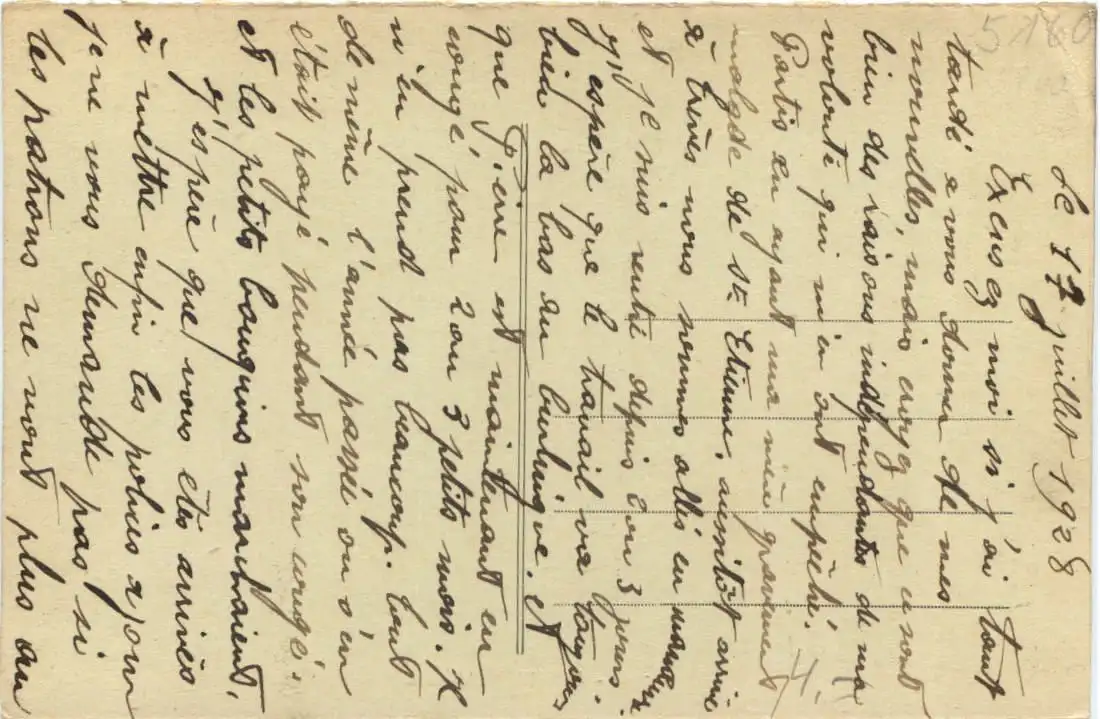 Le 17 juillet 1928
Excusez moi si j'ai tant
tardé a vous donner de mes
nouvelles, mais croyez que ce sont
bien des raisons indépendantes de ma
volonté qui m'en ont empêché.
Partis en ayant ma mère gravement
malade de St. Etienne, aussitôt arrivé
à trèves nous sommes allés en
et je suis rentré depuis 2 ou 3 jours.
J'espère que le travail va toujours
bien la bas au burlingue. et
que Pierre est maintenant en
congé, pour 2 ou 3 petits mois. Il
n'en prend pas beaucoup. tout
de même l'année passée on s'en
était payé pendant son congé.
et les petits bouquins marchaient.
J'espère que vous êtes arrivés
à mettre enfin les polices a jour
je ne vous demande pas si
les patrons ne sont plus au
5180
H.